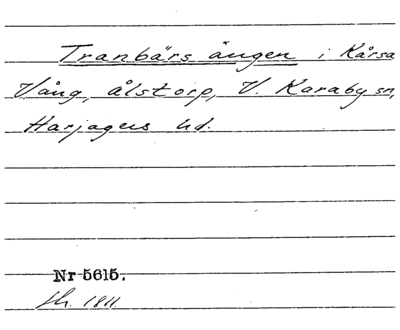 Tranbärs ängen i Kårsa
Vång, ålstorp, V. Karaby sn,
Harjagers hd.
Nr 5615.
1811